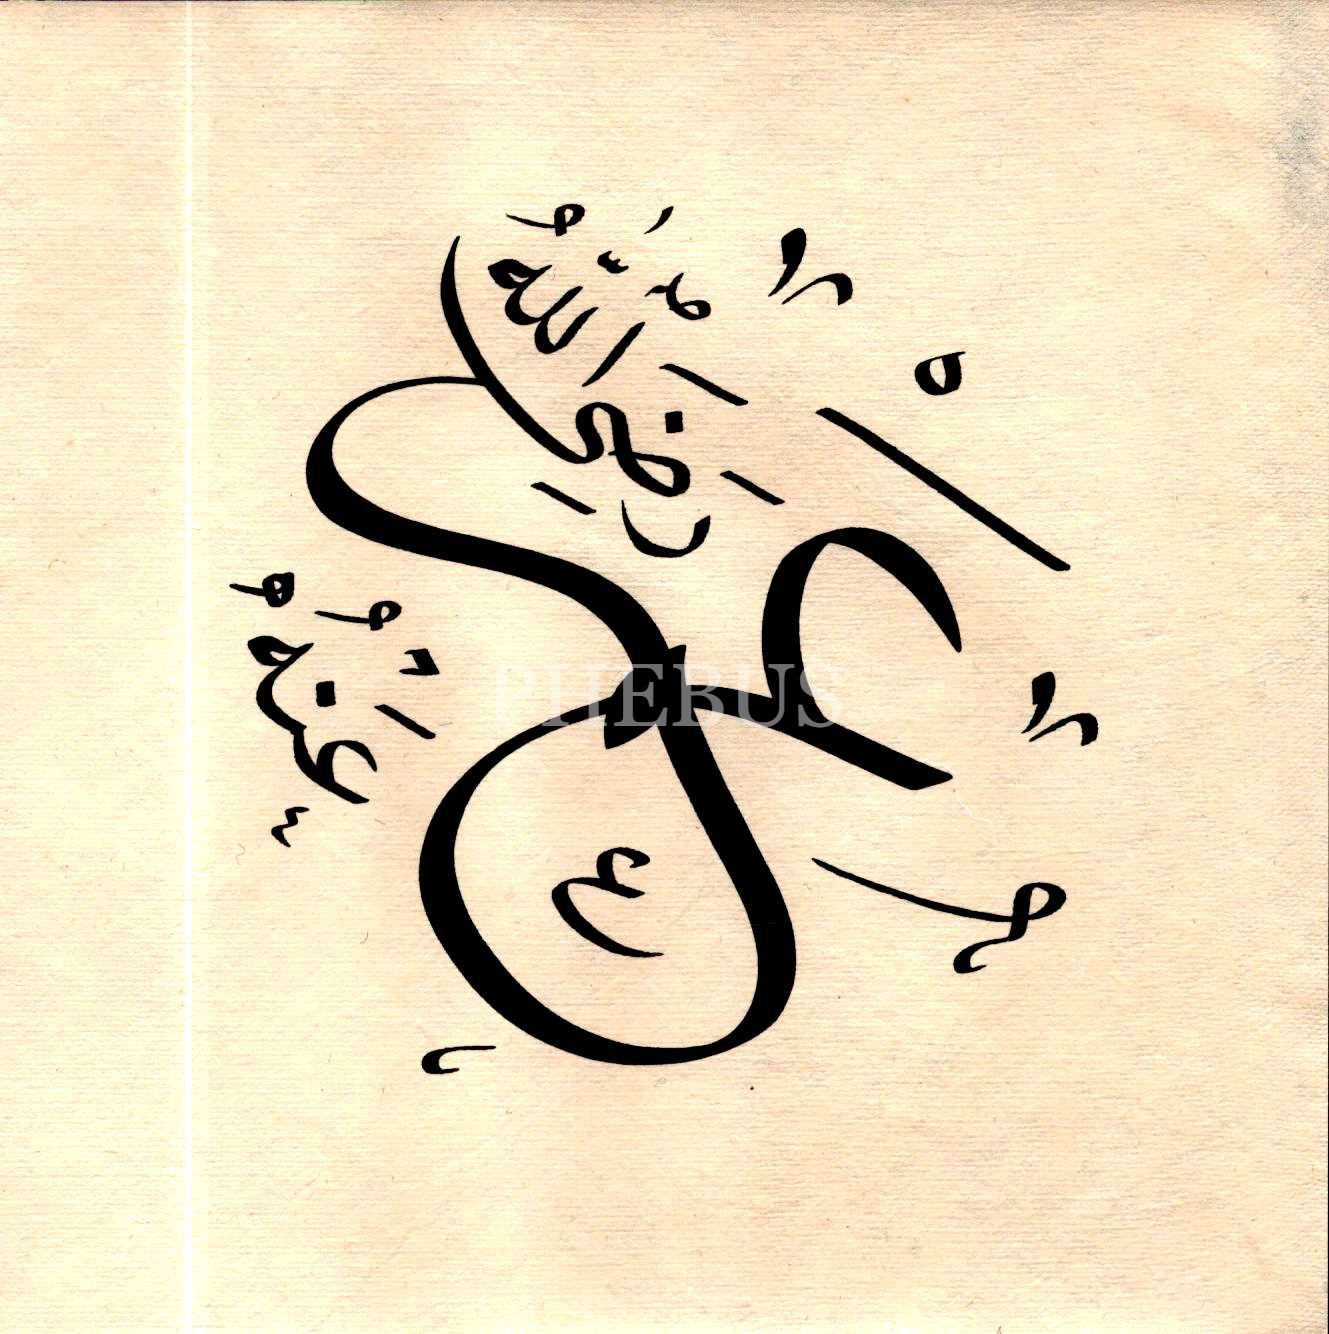 عمر
رضي الله
عنه
PHEBUS